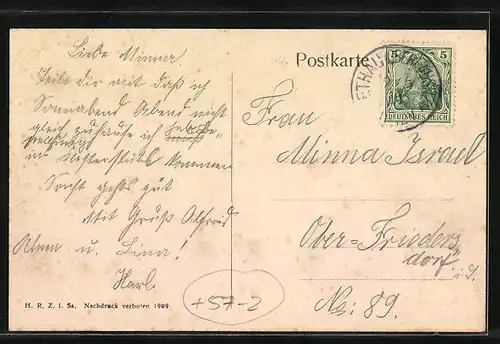 Liebe Minna!
Teile dir mit daß ich
Sonnabend Abend nicht
gleich zuhause ich
ins kommen
Sonst gehts gut
Mit Gruß Alfred
u. Lina!
Karl
H. R. Z. i. Sa. Nachdruck verboten 1909
+57-2
Postkarte
5 5
DEUTSCHES REICH
Frau
Minna Israel
Ober-Frieders
dorf i. S.
No: 89.